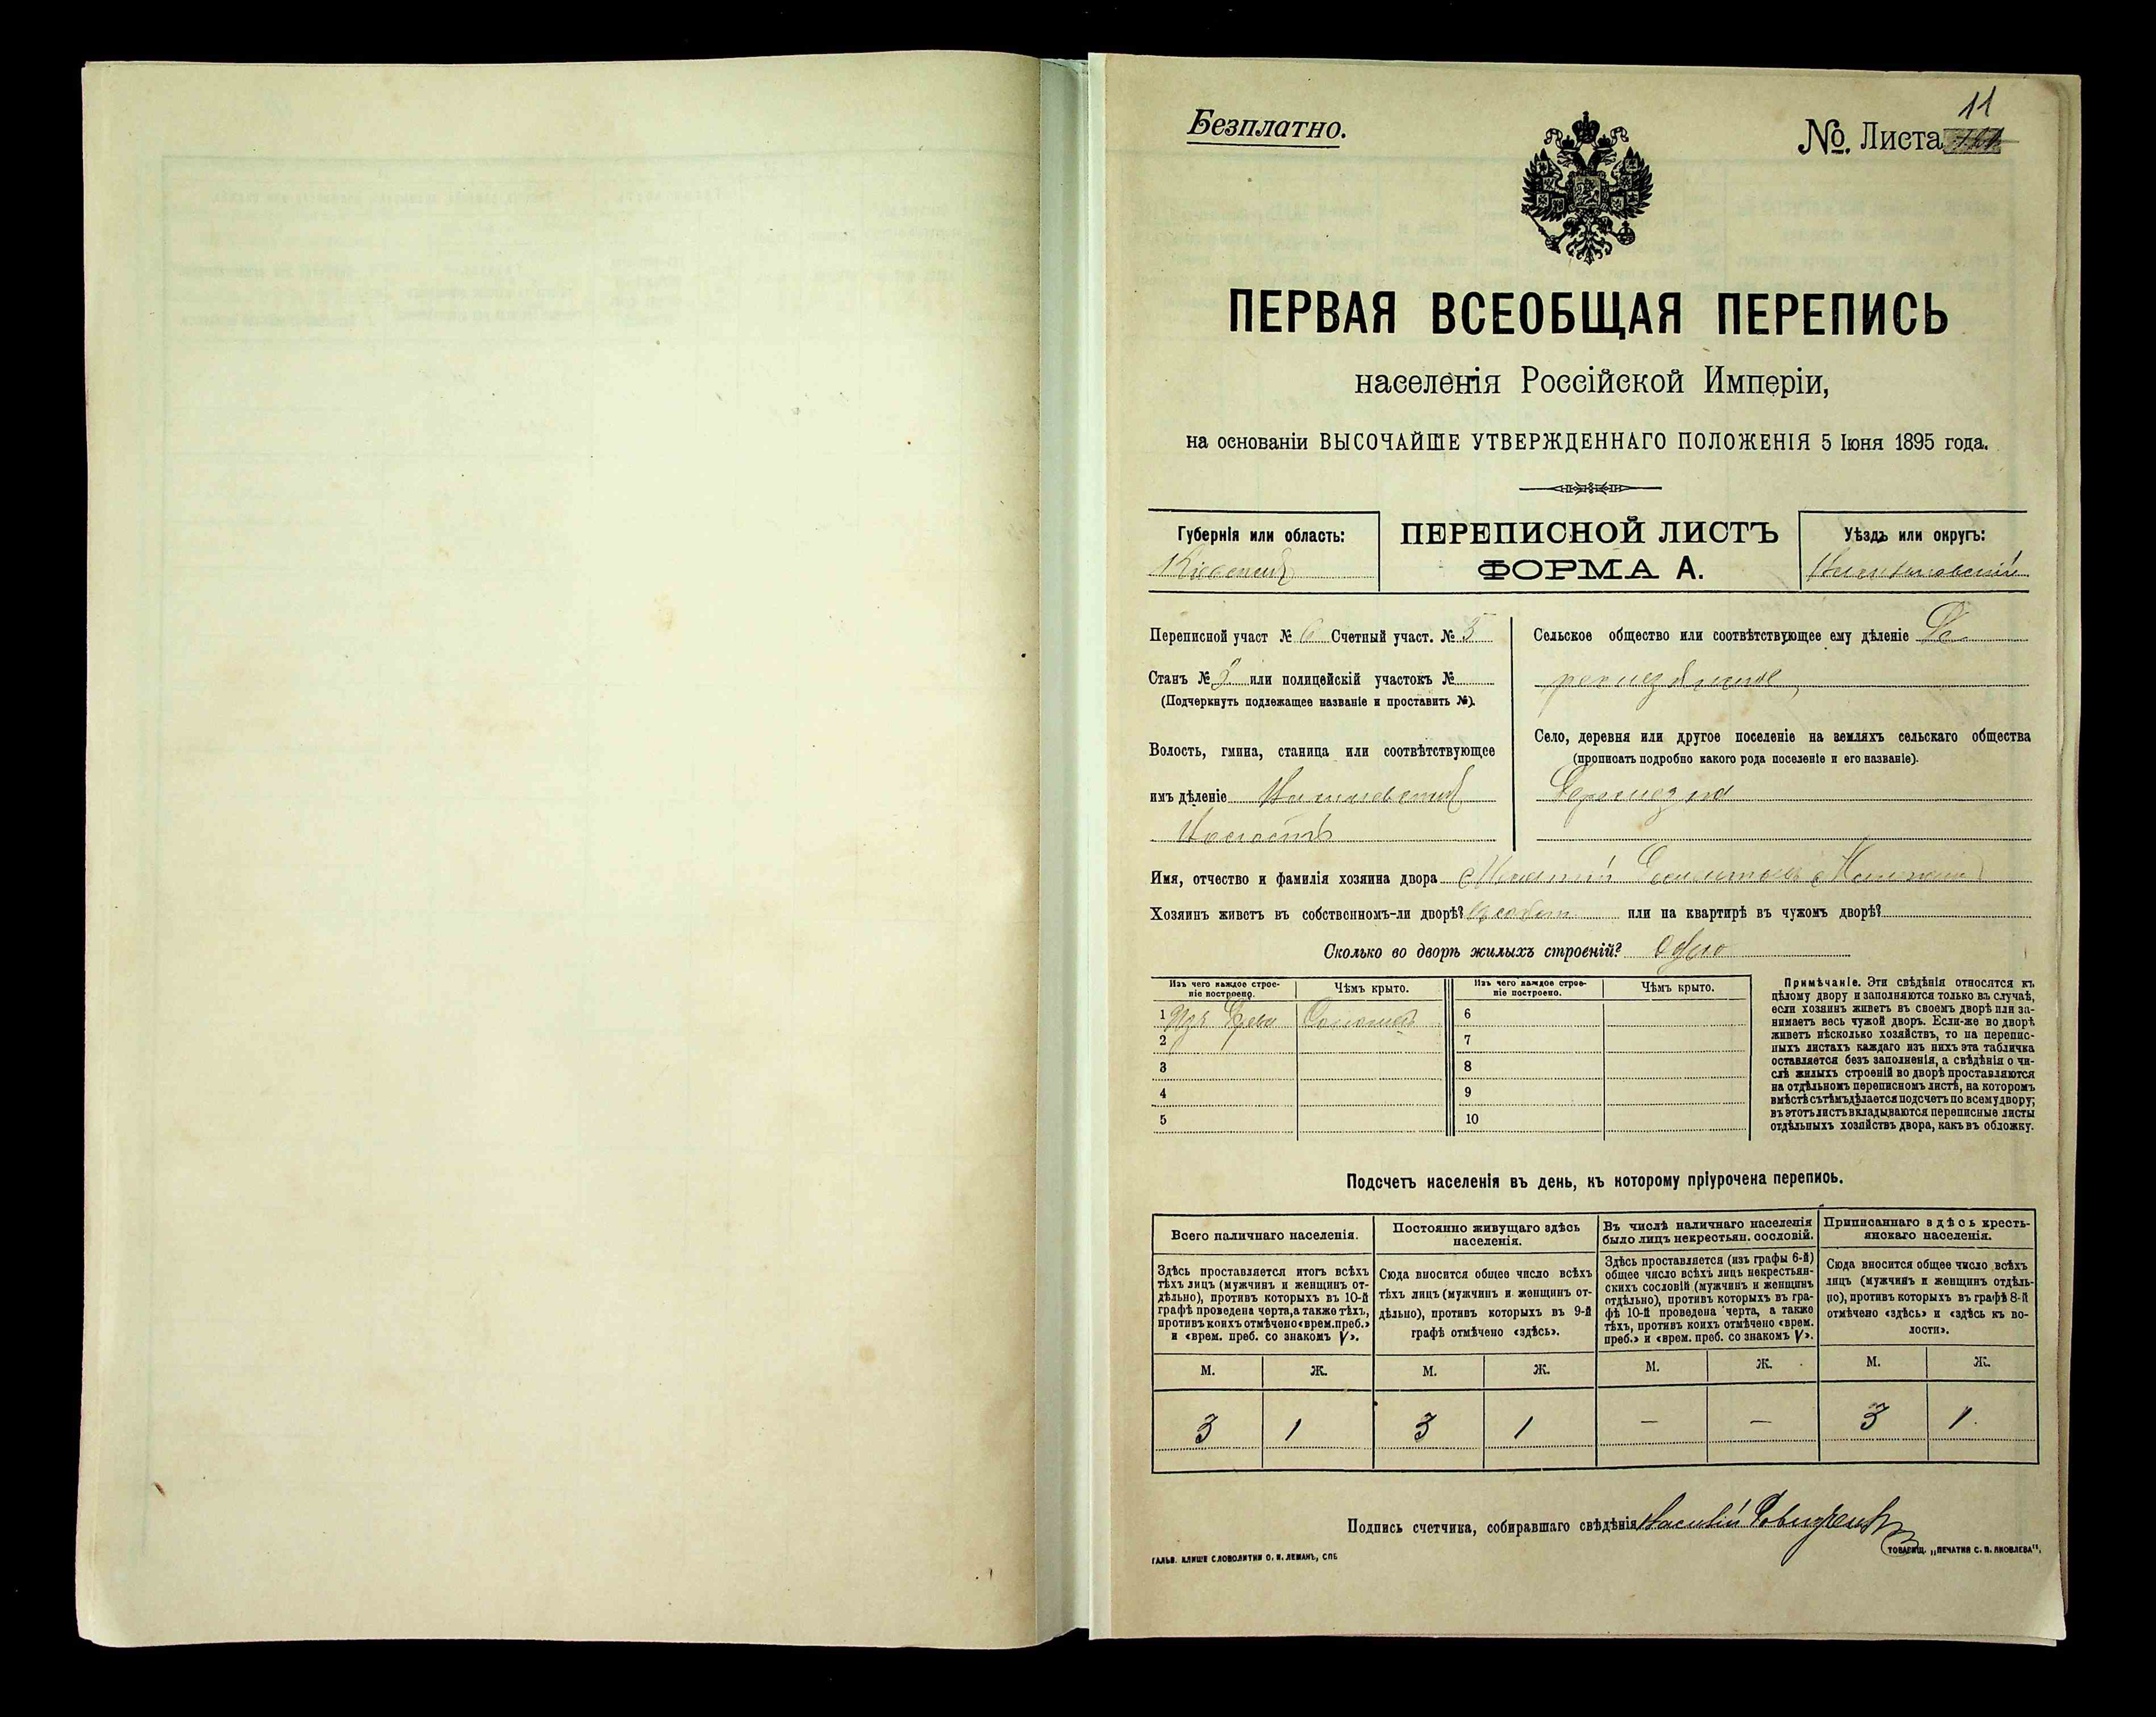 11
Безплатно.
№. Листа
ПЕРВАЯ ВСЕОБЩАЯ ПЕРЕПИСЬ
населенія Россійской Имперіи,
на основаніи ВЫСОЧАЙШЕ УТВЕРЖДЕННАГО ПОЛОЖЕНІЯ 5 Іюня 1895 года.
Губернія или область:
Кіевская
ПЕРЕПИСНОЙ ЛИСТЪ
ФОРМА А.
Уѣздъ или округъ:
Переписной участ № 6 Счетный участ. № 5
Станъ № 2 или полицейскій участокъ №
(Подчеркнуть подлежащее названіе и проставить №).
Волость, гмина, станица или соотвѣтствующее
имъ дѣленіе
Волость
Сельское общество или соотвѣтствующее ему дѣленіе
Село, деревня или другое поселеніе на земляхъ сельскаго общества
(прописать подробно какого рода поселеніе и его названіе).
Имя, отчество и фамилія хозяина двора
Хозяинъ живетъ въ собственномъ-ли дворѣ? или на квартирѣ въ чужомъ дворѣ?
Сколько во дворѣ жилыхъ строеній? Одно
Изъ чего каждое строе-
ніе построено.
Чѣмъ крыто.
Изъ чего каждое строе-
ніе построено.
Чѣмъ крыто.
1 Изъ древа Соломой 6
2 7
3 8
4 9
5 10
Примѣчаніе. Эти свѣдѣнія относятся къ
цѣлому двору и заполняются только въ случаѣ,
если хозяинъ живетъ въ своемъ дворѣ или за-
нимаетъ весь чужой дворъ. Если-же во дворѣ
живетъ нѣсколько хозяйствъ, то на перепис-
ныхъ листахъ каждаго изъ нихъ эта табличка
оставляется безъ заполненія, а свѣдѣнія о чи-
слѣ жилыхъ строеній во дворѣ проставляются
на отдѣльномъ переписномъ листѣ, на которомъ
вмѣстѣ съ тѣмъ дѣлается подсчетъ по всему двору;
въ этотъ листъ вкладываются переписные листы
отдѣльныхъ хозяйствъ двора, какъ въ обложку.
Подсчетъ населенія въ день, къ которому пріурочена перепись.
Всего наличнаго населенія.
Здѣсь проставляется итогъ всѣхъ
тѣхъ лицъ (мужчинъ и женщинъ от-
дѣльно), противъ которыхъ въ 10-й
графѣ проведена черта, а также тѣхъ,
противъ коихъ отмѣчено «врем. преб.»
и «врем. преб. со знакомъ V».
Постоянно живущаго здѣсь
населенія.
Сюда вносится общее число всѣхъ
тѣхъ лицъ (мужчинъ и женщинъ от-
дѣльно), противъ которыхъ въ 9-й
графѣ отмѣчено «здѣсь».
Въ числѣ наличнаго населенія
было лицъ некрестьян. сословій.
Здѣсь проставляется (изъ графы 6-й)
общее число всѣхъ лицъ некрестьян-
скихъ сословій (мужчинъ и женщинъ
отдѣльно), противъ которыхъ въ гра-
фѣ 10-й проведена черта, а также
тѣхъ, противъ коихъ отмѣчено «врем.
преб.» и «врем. преб. со знакомъ V».
Приписаннаго здѣсь кресть-
янскаго населенія.
Сюда вносится общее число всѣхъ
лицъ (мужчинъ и женщинъ отдѣль-
но), противъ которыхъ въ графѣ 8-й
отмѣчено «здѣсь» и «здѣсь къ во-
лости».
М. Ж. М. Ж. М. Ж. М. Ж.
3 1 3 1 — — 3 1
Подпись счетчика, собиравшаго свѣдѣнія Василій
ГАЛЬВ. КЛИШЕ СЛОВОЛИТНИ О. И. ЛЕМАНЪ, СПБ
ТОВАРИЩ. „ПЕЧАТНЯ С. П. ЯКОВЛЕВА".